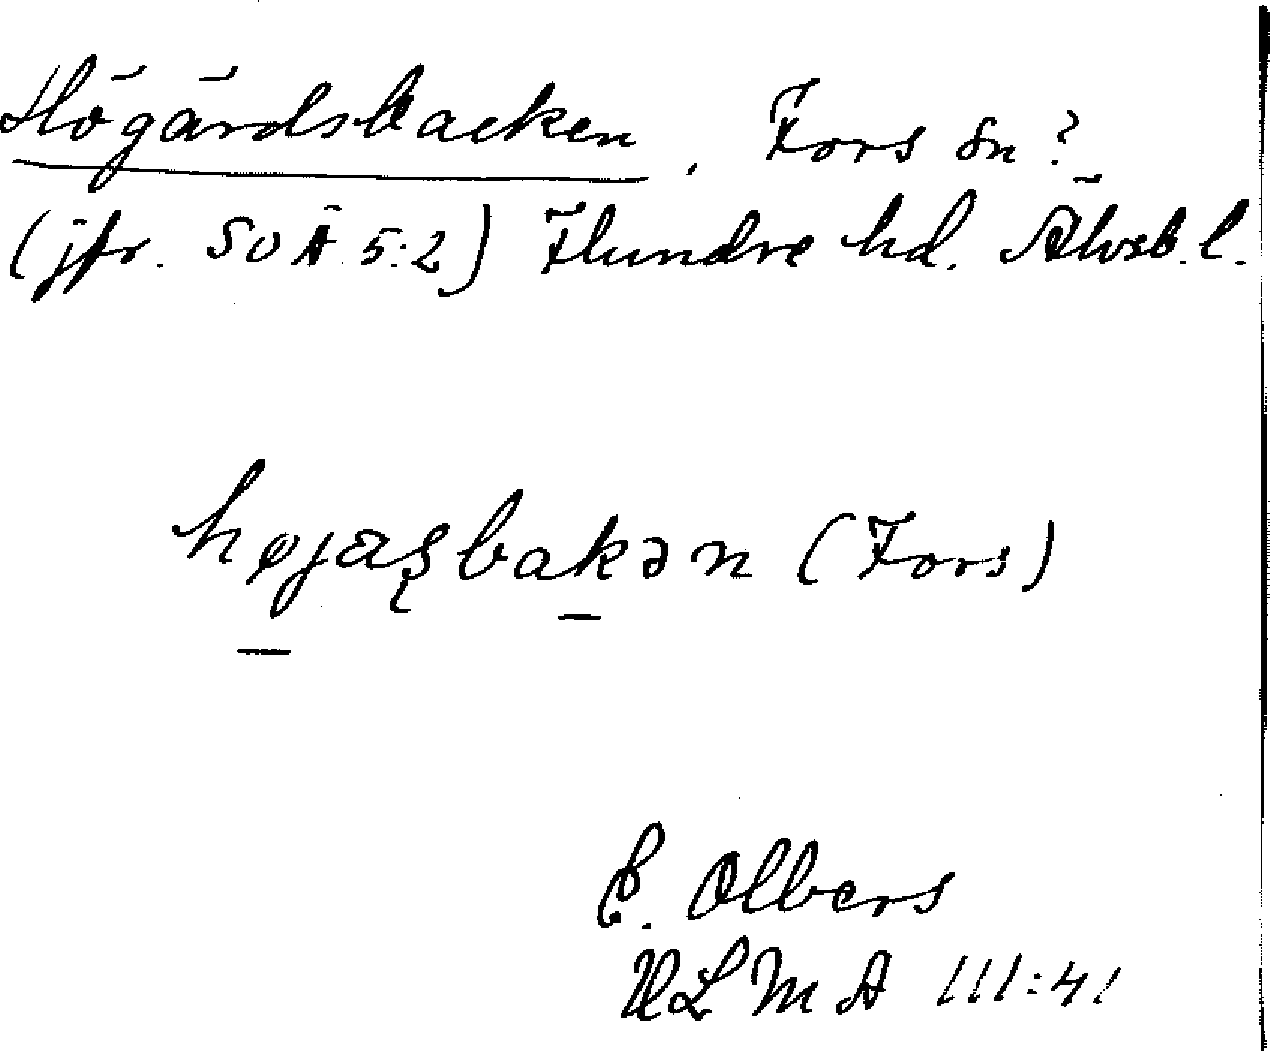 Högärdsbacken, Fors sn?
(jfr. SOÄ 5:2) Flundre hd. Älvsb. l.
højaʂbakən (Fors)
E. Olbers
ULMA 111:41